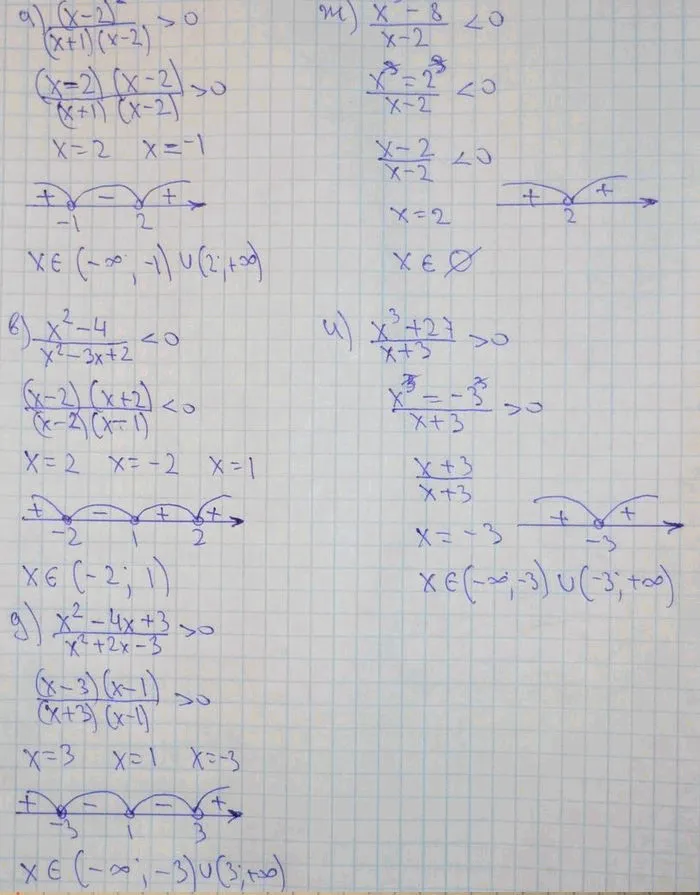 а) (x-2)²/(x+1)(x-2) >0
(x-2)(x-2)/(x+1)(x-2) >0
x=2 x=-1
+ - +
-1 2
x∈(-∞; -1)∪(2;+∞)
в) x²-4/x²-3x+2 <0
(x-2)(x+2)/(x-2)(x-1) <0
x=2 x=-2 x=1
+ - + +
-2 1 2
x∈(-2; 1)
д) x²-4x+3/x²+2x-3 >0
(x-3)(x-1)/(x+3)(x-1) >0
x=3 x=1 x=-3
+ - - +
-3 1 3
x∈(-∞; -3)∪(3;+∞)
ж) x³-8/x-2 <0
x³=2³/x-2 <0
x-2/x-2 <0
x=2
+ +
2
x∈∅
и) x³+27/x+3 >0
x³=-3³/x+3 >0
x+3/x+3
x=-3
+ +
-3
x∈(-∞;-3)∪(-3;+∞)